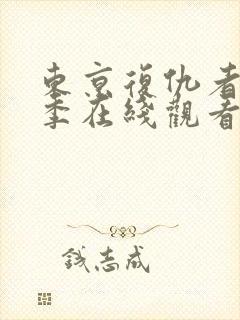 東京復仇者
季在綫觀看
錢志成